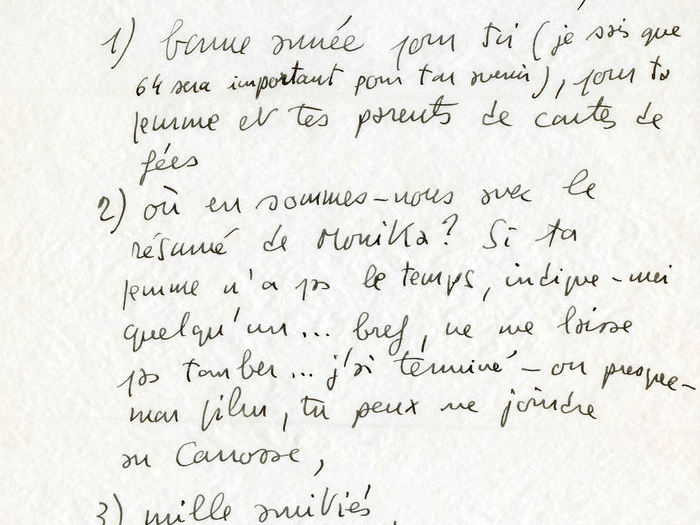 1) bonne année pour toi (je sais que
64 sera important pour ton avenir), pour ta
femme et tes parents de contes de
fées
2) où en sommes-nous avec le
résumé de Monika? Si ta
femme n'a pas le temps, indique-moi
quelqu'un... bref, ne me laisse
pas tomber... j'ai terminé - ou presque -
mon film, tu peux me joindre
au Carrosse,
3) mille amitiés,